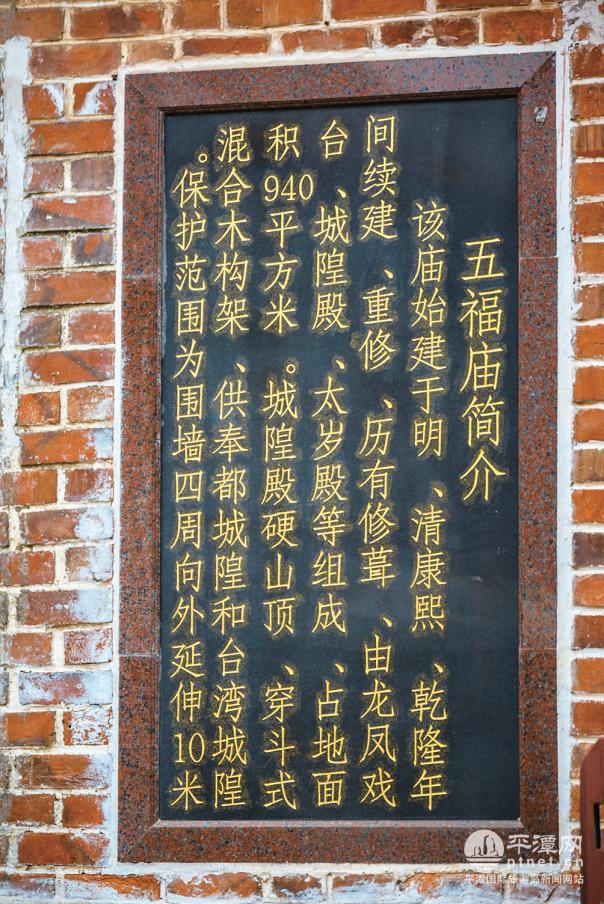 五福庙简介
该庙始建于明、清康熙、乾隆年
间续建、重修、历有修葺、由龙凤戏
台、城隍殿、太岁殿等组成、占地面
积940平方米。城隍殿硬山顶、穿斗式
混合木构架、供奉都城隍和台湾城隍
。保护范围为围墙四周向外延伸10米
平潭网
ptnet.cn
平潭国际旅游岛新闻网站